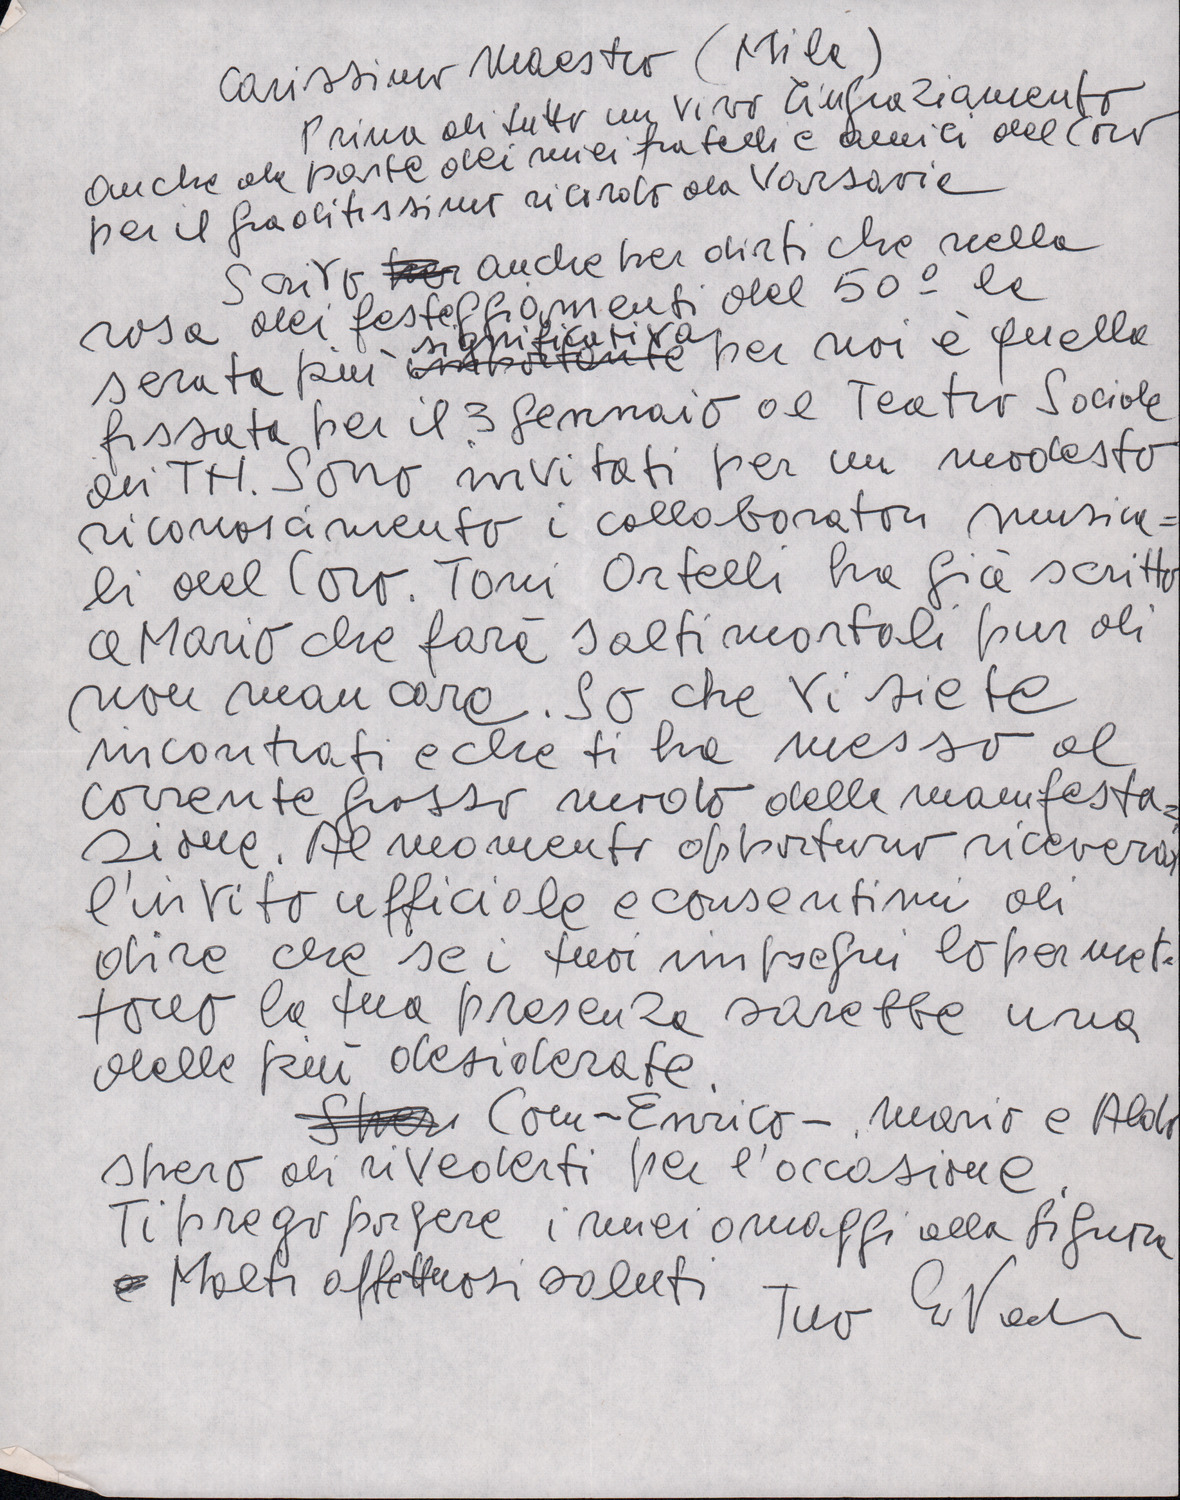 Carissimo Maestro (Mila)
Prima di tutto un vivo ringraziamento
anche da parte dei miei fratelli e amici del Coro
per il graditissimo ricordo da Varsavia
Scrivo per anche per dirti che nella
rosa dei festeggiamenti del 50º la
significativa
serata più importante per noi è quella
fissata per il 3 Gennaio al Teatro Sociale
di TN. Sono invitati per un modesto
riconoscimento i collaboratori musica=
li del Coro. Toni Ortelli ha già scritto
a Mario che farà salti mortali pur di
non mancare. So che vi siete
incontrati e che ti ha messo al
corrente grosso modo della manifesta=
zione. Al momento opportuno riceverai
l'invito ufficiale e consentimi di
dire che se i tuoi impegni lo permet=
tono la tua presenza sarebbe una
delle più desiderate.
Spero Con - Enrico - Mario e Aldo
spero di rivederti per l'occasione.
Ti prego porgere i miei omaggi alla Signora
e Molti affettuosi saluti
Tuo